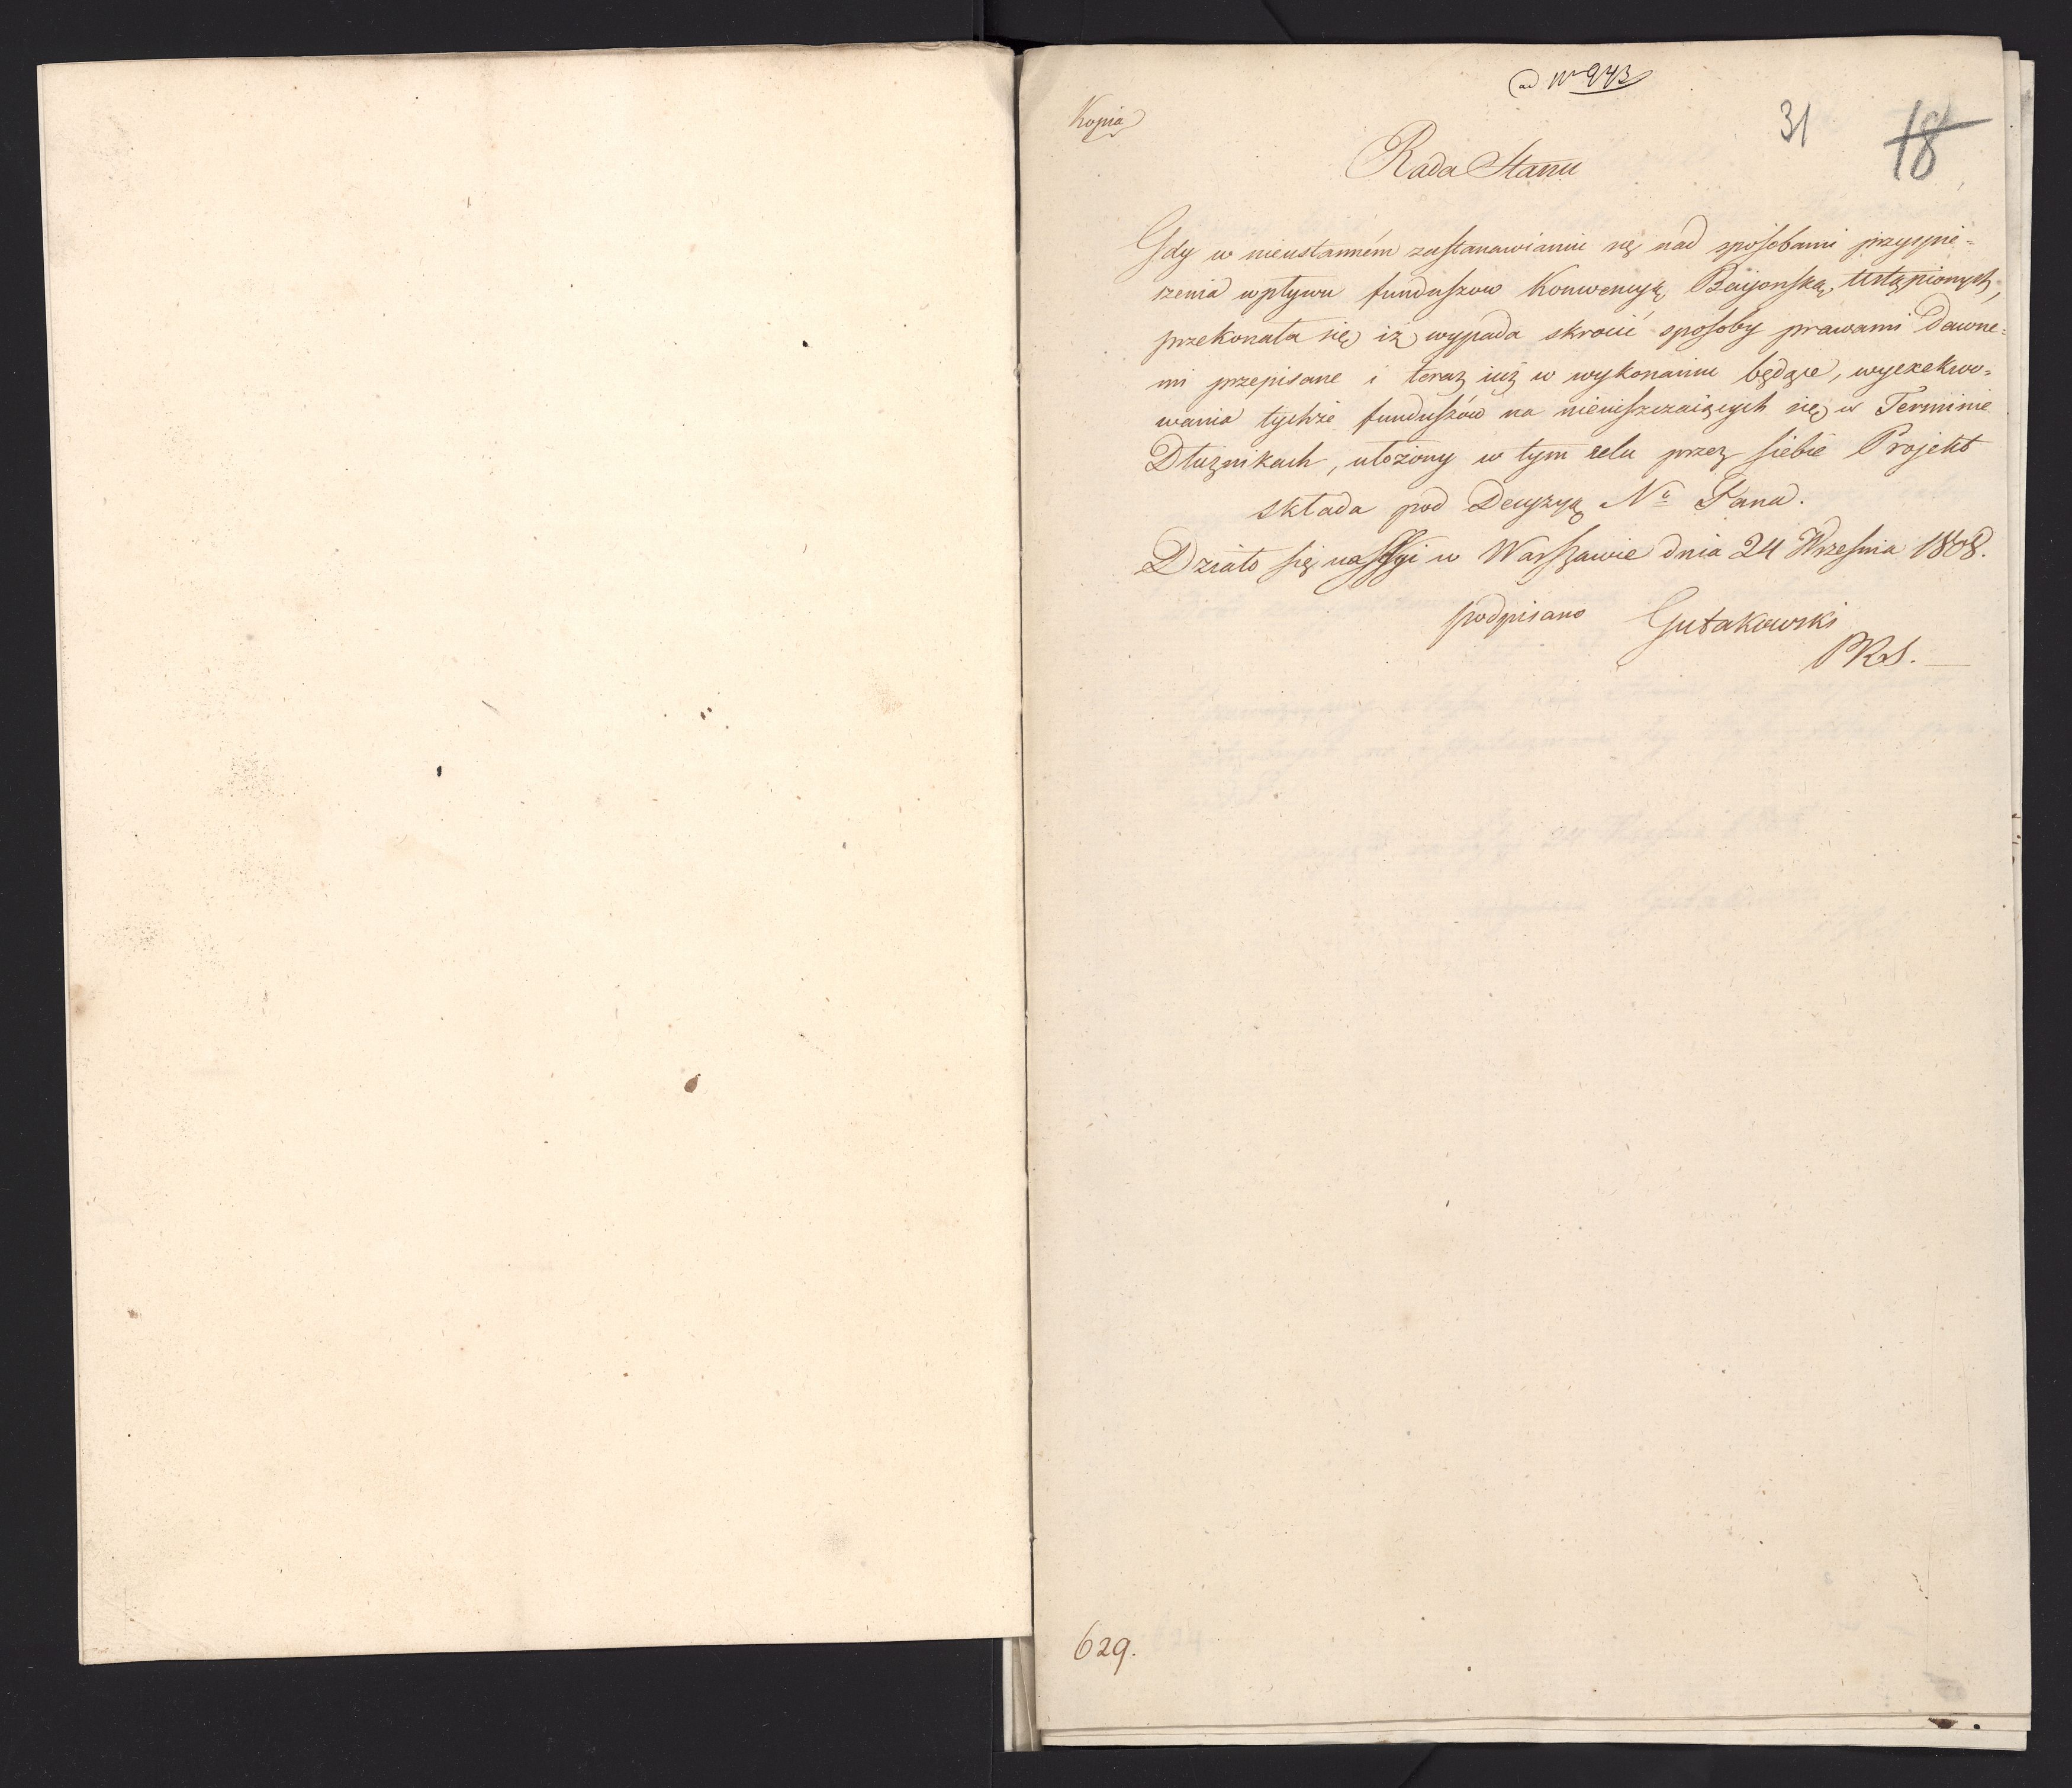 ad Nr 943
Kopia
31 18
Rada Stanu
Gdy w nieustanném zastanawianiu się nad sposobami przyspie=
szenia wpływu funduszow Konwencyą Baijonską Ustąpionych,
przekonała się iż wypada skrocić sposoby prawami Dawne=
mi przepisane i teraz iuż w wykonaniu będące, wyexekwo=
wania tychże funduszów na nieuiszczaiących się w Terminie
Dłużnikach, ułożony w tym celu przez siebie Projekt
składa pod Decyzyą No Pana.
Działo się na Sessyi w Warszawie dnia 24 Września 1808.
podpisano Gutakowski
PRS.
629.